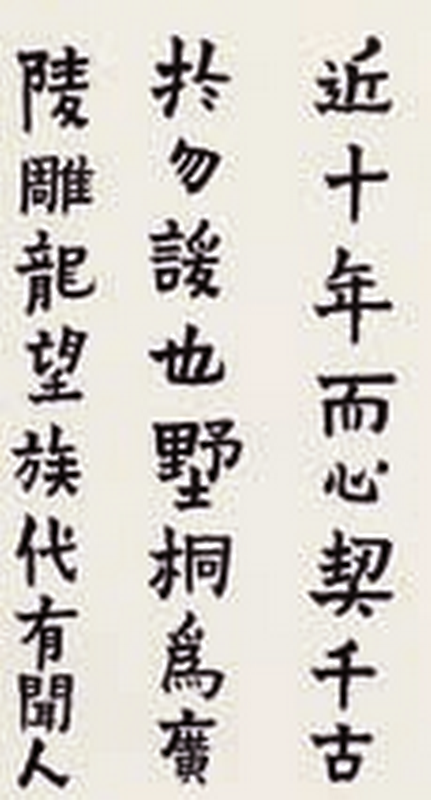 近十年而心契千古
於勿諼也墅桐爲廣
陵雕龍望族代有聞人